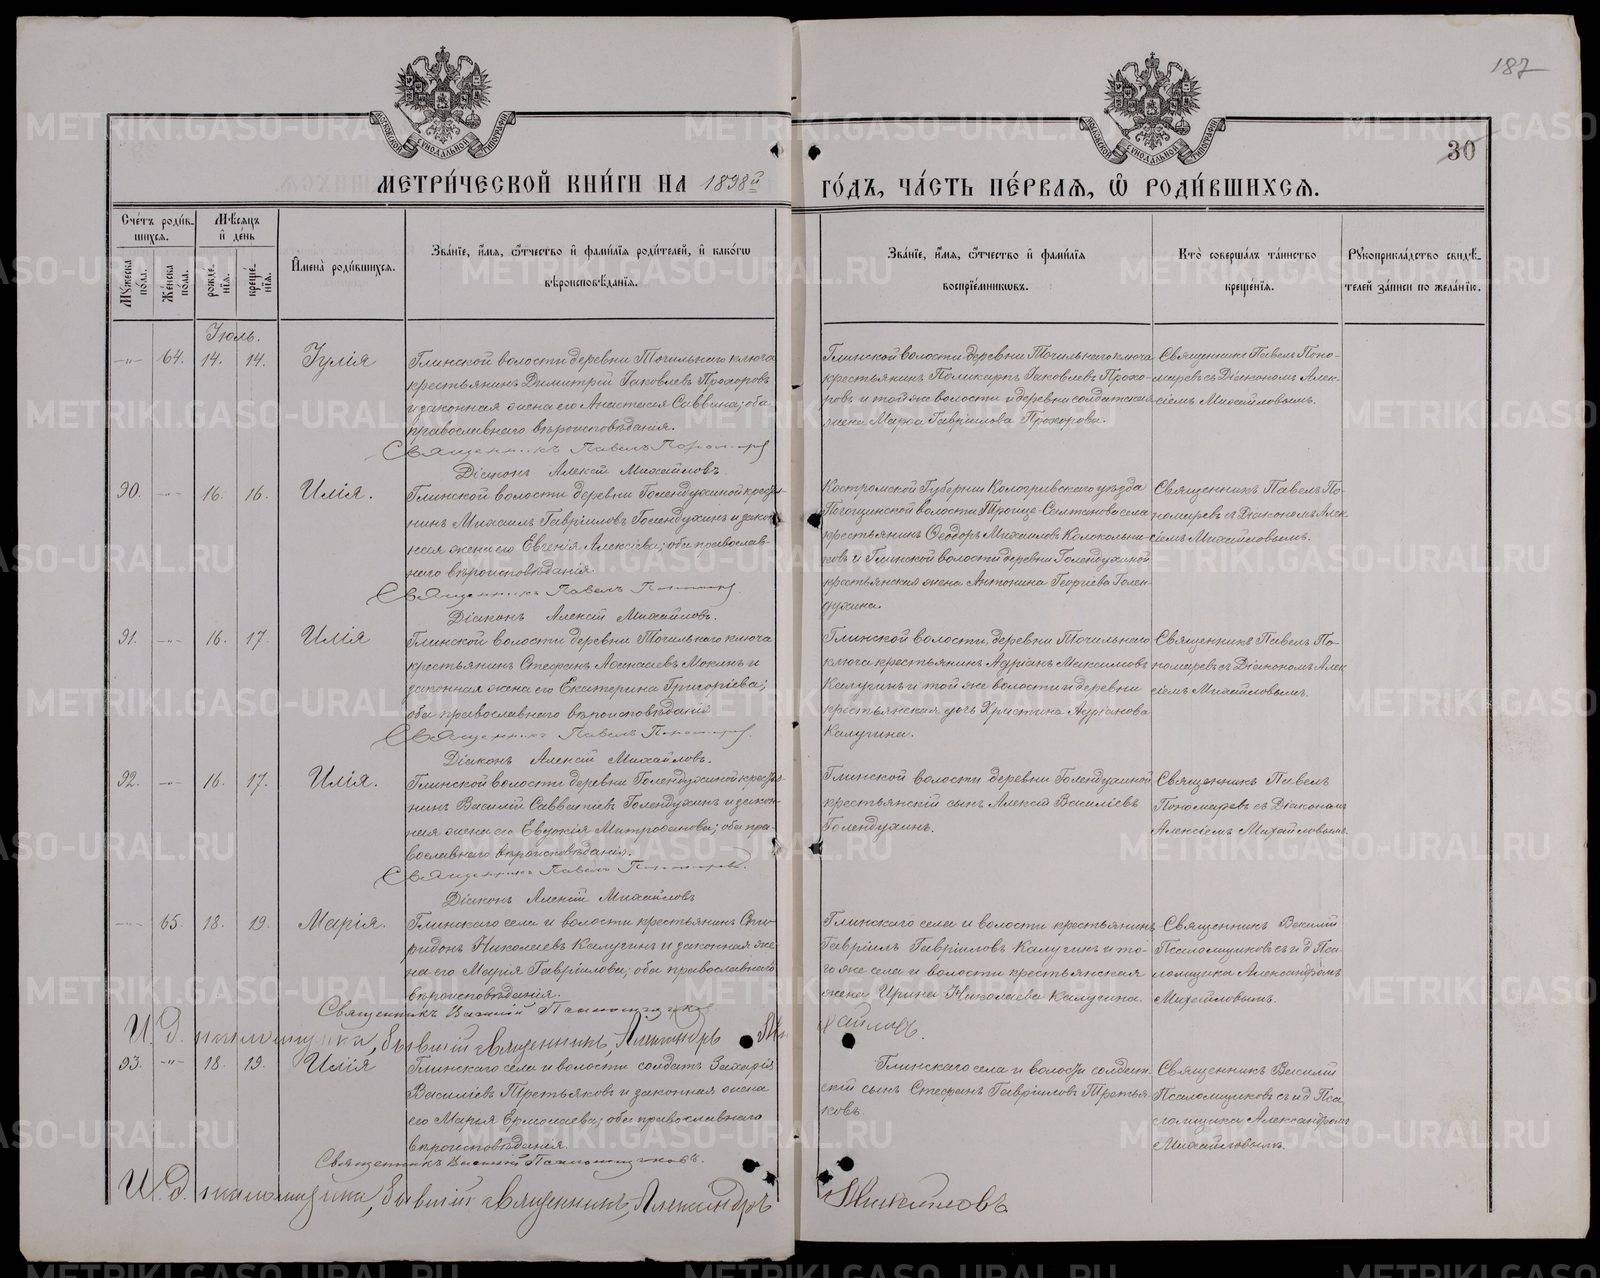 187
30
МЕТРИ́ЧЕСКОЙ КНИ́ГИ НА 1898й
ГО́ДЪ, ЧА́СТЬ ПЕ́РВАѦ, Ѽ РОДИ́ВШИХСѦ.
Сче́тъ роди́вшихсѧ.
Мѣ́сѧцъ и де́нь
Мꙋжеска по́ла.
Же́нска по́ла.
рожде́нїѧ.
креще́нїѧ.
Имена̀ роди́вшихсѧ.
Зва́нїе, и́мѧ, ѻ́тчество и фами́лїѧ роди́телей, и како́гѡ
вѣроисповѣ́данїѧ.
Зва́нїе, и́мѧ, ѻ́тчество и фами́лїѧ
воспрїе́мниковъ.
Кто̀ соверша́лъ та́инство
креще́нїѧ.
Рꙋкоприкла́дство свидѣ́-
телей за́писи по жела́нїю.
Іюль.
-„- 64. 14. 14. Іулія
Глинской волости деревни Точильнаго ключа
крестьянинъ Димитрій Іаковлевъ Прохоровъ
и законная жена его Анастасія Саввина; оба
православнаго вѣроисповѣданія.
Священникъ Павелъ Пономаревъ
Діаконъ Алексій Михайловъ
Глинской волости деревни Точильнаго ключа
крестьянинъ Поликарпъ Іаковлевъ Прохо-
ровъ и той же волости и деревни солдатская
жена Марѳа Гавріилова Прохорова.
Священникъ Павелъ Поно-
маревъ съ Діакономъ Алек-
сіемъ Михайловымъ.
90. -„- 16. 16. Илія.
Глинской волости деревни Голендухиной кресть-
нинъ Михаилъ Гавріиловъ Голендухинъ и закон-
ная жена его Евгенія Алексіева; оба православ-
наго вѣроисповѣданія.
Священникъ Павелъ Пономаревъ
Діаконъ Алексій Михайловъ.
Костромской Губерніи Кологривскаго уѣзда
волости Троице- села
крестьянинъ Ѳеодоръ Михайловъ Колокольни-
ковъ и Глинской волости деревни Голендухиной
крестьянская жена Антонина Георгіева Голен-
духина.
Священникъ Павелъ По-
номаревъ съ Діакономъ Алек-
сіемъ Михайловымъ.
91. -„- 16. 17. Илія
Глинской волости деревни Точильнаго ключа
крестьянинъ Стефанъ Аѳанасіевъ Мокинъ и
законная жена его Екатерина Григоріева;
оба православнаго вѣроисповѣданія
Священникъ Павелъ Пономаревъ.
Діаконъ Алексій Михайловъ.
Глинской волости, деревни Точильнаго
ключа крестьянинъ Адріанъ Максимовъ
Калугинъ и той же волости и деревни
крестьянская дочь Христина Адріанова
Калугина.
Священникъ Павелъ По-
номаревъ съ Діакономъ Алек-
сіемъ Михайловымъ.
92. -„- 16. 17. Илія.
Глинской волости деревни Голендухиной кресть-
нинъ Василій Савватіевъ Голендухинъ и закон-
ная жена его Евдокія Митрофанова; оба пра-
вославнаго вѣроисповѣданія.
Священникъ Павелъ Пономаревъ
Діаконъ Алексій Михайловъ
Глинской волости деревни Голендухиной
крестьянскій сынъ Алексій Василіевъ
Голендухинъ.
Священникъ Павелъ
Пономаревъ съ Діакономъ
Алексіемъ Михайловымъ.
-„- 65. 18. 19. Марія.
Глинскаго села и волости крестьянинъ Спи-
ридонъ Николаевъ Калугинъ и законная же-
на его Марія Гавріилова; оба православнаго
вѣроисповѣданія.
Священникъ Василій Псаломщиковъ
И. д. псаломщика, бывшій священникъ, Александръ Михайловъ.
Глинскаго села и волости крестьянинъ
Гавріилъ Гавріиловъ Калугинъ и то-
го же села и волости крестьянская
жена Ирина Николаева Калугина.
Священникъ Василій
Псаломщиковъ съ и д Пса-
ломщика Александромъ
Михайловымъ.
93. -„- 18. 19. Илія
Глинскаго села и волости солдатъ Захарія
Василіевъ Третьяковъ и законная жена
его Марія Ермолаева; оба православнаго
вѣроисповѣданія.
Священникъ Василій Псаломщиковъ.
И. д. псаломщика, бывшій священникъ, Александръ Михайловъ
Глинскаго села и волости солдат-
скій сынъ Стефанъ Гавріиловъ Третья-
ковъ.
Священникъ Василій
Псаломщиковъ съ и д Пса-
ломщика Александромъ
Михайловымъ.
METRIKI.GASO-URAL.RU